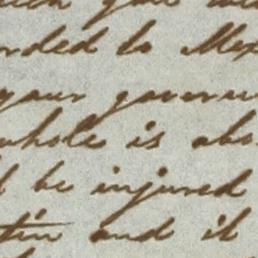 you
nded to Mex
your govern
whole is abo
d be injured
tin and it